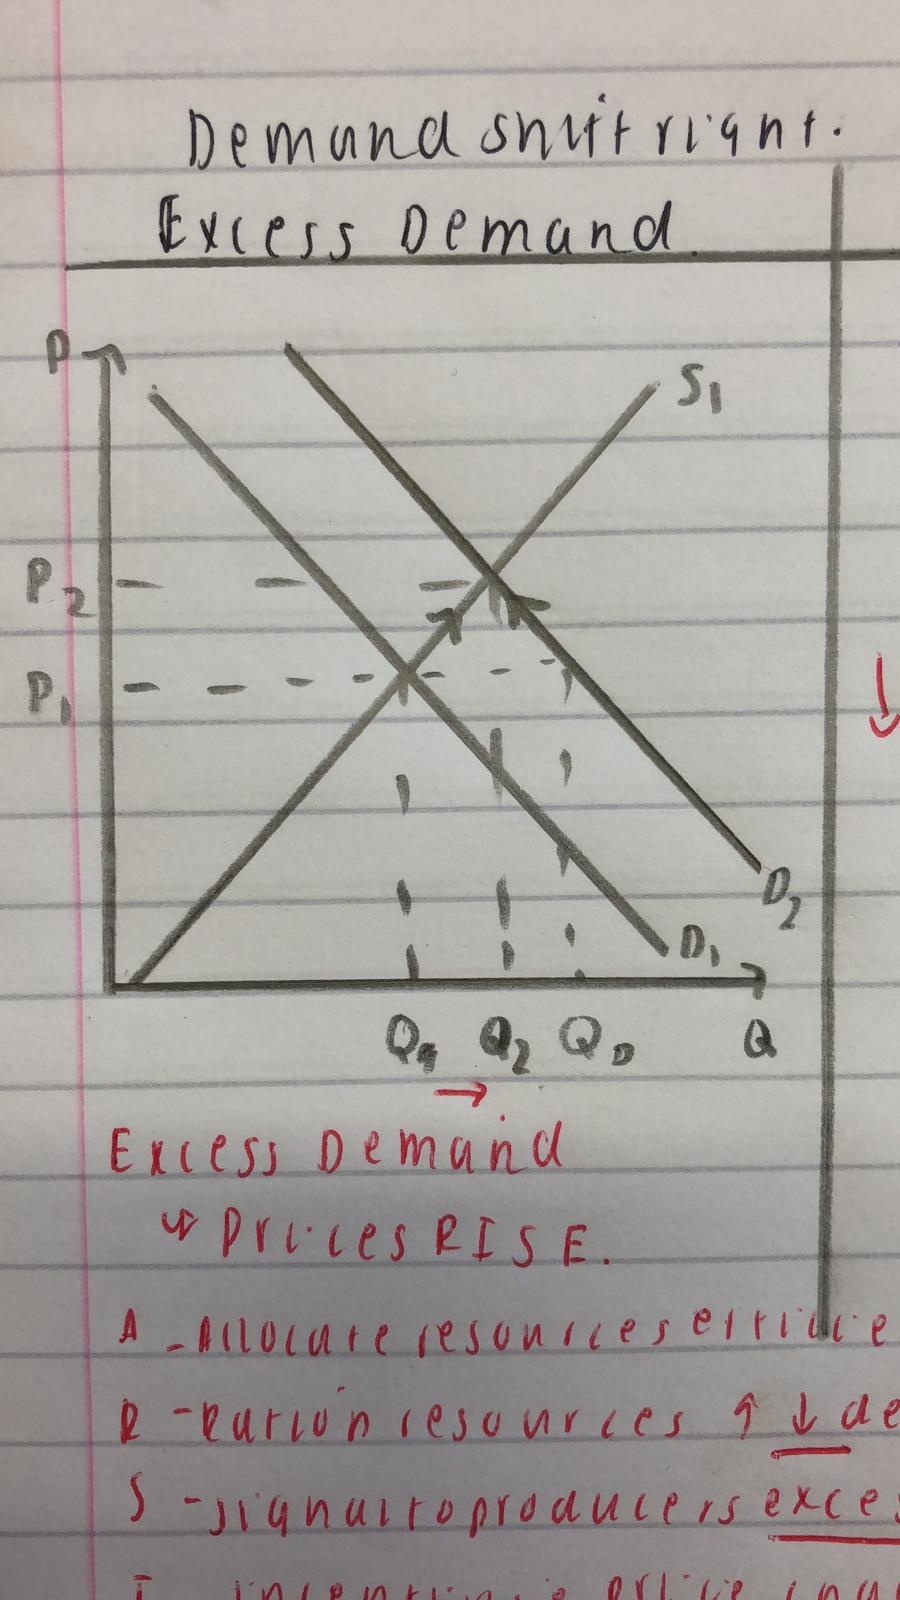 Demand shift right.
Excess Demand.
P
S1
P2
P1
D2
D1
Q1 Q2 QD Q
→
Excess Demand
↳ Prices RISE.
A - Allocate resources
R - Ration resources ↑ ↓ de
S - signal to producers exces
I incentive price